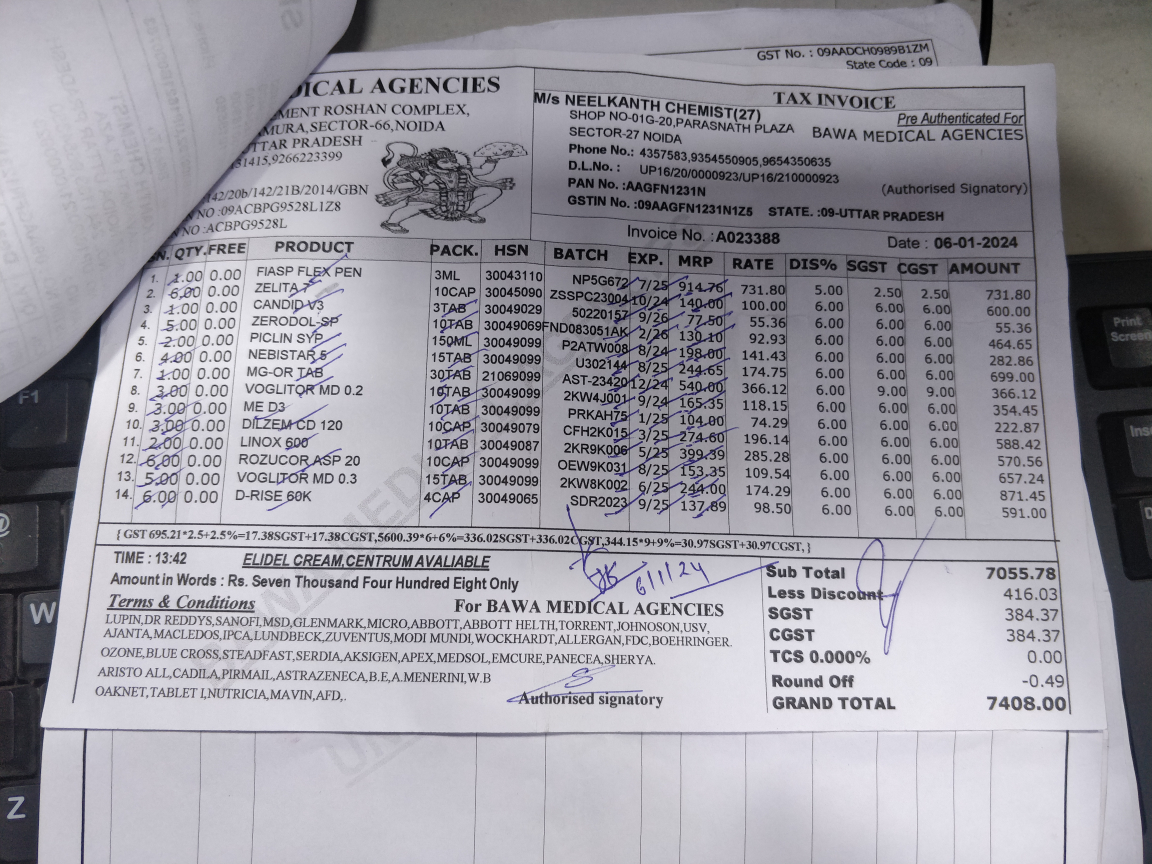 GST No. : 09AADCH0989B1ZM
State Code : 09
ICAL AGENCIES
MENT ROSHAN COMPLEX,
AMURA,SECTOR-66,NOIDA
TTAR PRADESH
31415,9266223399
142/20b/142/21B/2014/GBN
NO :09ACBPG9528L1Z8
NO :ACBPG9528L
TAX INVOICE
M/s NEELKANTH CHEMIST(27)
SHOP NO-01G-20,PARASNATH PLAZA
SECTOR-27 NOIDA
Phone No.: 4357583,9354550905,9654350635
D.L.No. : UP16/20/0000923/UP16/210000923
PAN No. :AAGFN1231N
GSTIN No. :09AAGFN1231N1Z5 STATE. :09-UTTAR PRADESH
Pre Authenticated For
BAWA MEDICAL AGENCIES
(Authorised Signatory)
Invoice No. :A023388 Date : 06-01-2024
N. QTY. FREE PRODUCT PACK. HSN BATCH EXP. MRP RATE DIS% SGST CGST AMOUNT
1. 1.00 0.00 FIASP FLEX PEN 3ML 30043110 NP5G672 7/25 914.76 731.80 5.00 2.50 2.50 731.80
2. 6.00 0.00 ZELITA 7 10CAP 30045090 ZSSPC23004 10/24 140.00 100.00 6.00 6.00 6.00 600.00
3. 1.00 0.00 CANDID V3 3TAB 30049029 50220157 9/26 77.50 55.36 6.00 6.00 6.00 55.36
4. 5.00 0.00 ZERODOL-SP 10TAB 30049069 FND083051AK 2/26 130.10 92.93 6.00 6.00 6.00 464.65
5. 2.00 0.00 PICLIN SYP 150ML 30049099 P2ATW008 8/24 198.00 141.43 6.00 6.00 6.00 282.86
6. 4.00 0.00 NEBISTAR 5 15TAB 30049099 U302144 8/25 244.65 174.75 6.00 6.00 6.00 699.00
7. 1.00 0.00 MG-OR TAB 30TAB 21069099 AST-23420 12/24 540.00 366.12 6.00 9.00 9.00 366.12
8. 3.00 0.00 VOGLITOR MD 0.2 10TAB 30049099 2KW4J001 9/24 165.35 118.15 6.00 6.00 6.00 354.45
9. 3.00 0.00 ME D3 10TAB 30049099 PRKAH75 1/25 104.00 74.29 6.00 6.00 6.00 222.87
10. 3.00 0.00 DILZEM CD 120 10CAP 30049079 CFH2K015 3/25 274.60 196.14 6.00 6.00 6.00 588.42
11. 2.00 0.00 LINOX 600 10TAB 30049087 2KR9K006 5/25 399.39 285.28 6.00 6.00 6.00 570.56
12. 6.00 0.00 ROZUCOR ASP 20 10CAP 30049099 OEW9K031 8/25 153.35 109.54 6.00 6.00 6.00 657.24
13. 5.00 0.00 VOGLITOR MD 0.3 15TAB 30049099 2KW8K002 6/25 244.00 174.29 6.00 6.00 6.00 871.45
14. 6.00 0.00 D-RISE 60K 4CAP 30049065 SDR2023 9/25 137.89 98.50 6.00 6.00 6.00 591.00
{ GST 695.21*2.5+2.5%=17.38SGST+17.38CGST,5600.39*6+6%=336.02SGST+336.02CGST,344.15*9+9%=30.97SGST+30.97CGST, }
TIME : 13:42 ELIDEL CREAM,CENTRUM AVALIABLE
Amount in Words : Rs. Seven Thousand Four Hundred Eight Only
6/1/24
Terms & Conditions For BAWA MEDICAL AGENCIES
LUPIN,DR REDDYS,SANOFI,MSD,GLENMARK,MICRO,ABBOTT,ABBOTT HELTH,TORRENT,JOHNSON,USV,
AJANTA,MACLEDOS,IPCA,LUNDBECK,ZUVENTUS,MODI MUNDI,WOCKHARDT,ALLERGAN,FDC,BOEHRINGER.
OZONE,BLUE CROSS,STEADFAST,SERDIA,AKSIGEN,APEX,MEDSOL,EMCURE,PANECEA,SHERYA.
ARISTO ALL,CADILA,PIRMAIL,ASTRAZENECA,B.E,A.MENERINI,W.B
OAKNET,TABLET I,NUTRICIA,MAVIN,AFD,.
Authorised signatory
Sub Total 7055.78
Less Discount 416.03
SGST 384.37
CGST 384.37
TCS 0.000% 0.00
Round Off -0.49
GRAND TOTAL 7408.00
F1
@
W
Z
Print
Screen
Ins